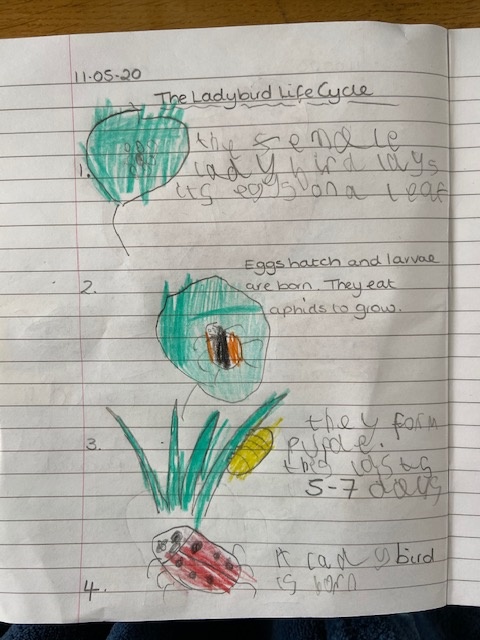 11-05-20
The Ladybird Life Cycle
1. the female
ladybird lays
its eggs on a leaf
2. Eggs hatch and larvae
are born. They eat
aphids to grow.
3. they form
pupae.
this lasts
5-7 days
4. A ladybird
is born